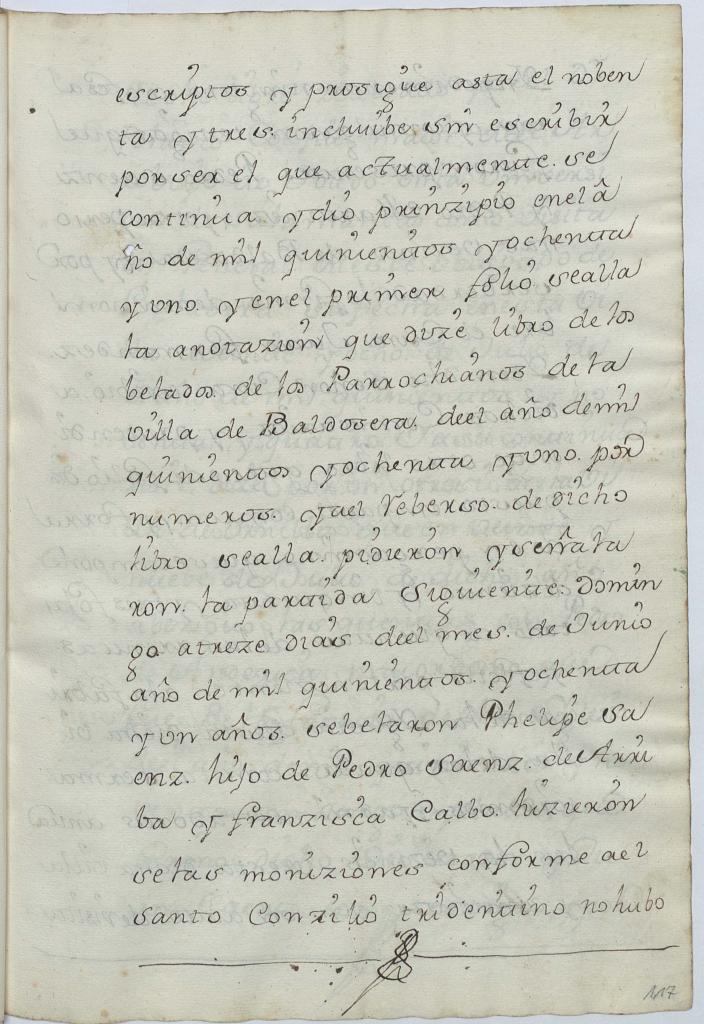 escriptos y prosigue asta el noben
ta y tres. incluibe sin escribir
por ser el que actualmente. se
continua y dio prinzipio en el a
ño de mil quinientos y ochenta
y uno. y en el primer folio se alla
la anotazion que dize libro de los
belados. de los Parrochianos de la
villa de Baldosera. deel año de mil
quinientos y ochenta y uno. por
numeros. y a el reberso. de dicho
libro se alla. pidieron y señala
ron. la partida siguiente: Domin
go a treze dias deel mes. de Junio
año de mil quinientos. y ochenta
y un años. se belaron Phelipe Sa
enz. hijo de Pedro Saenz. de Arri
ba y franzisca Calbo. hizieron
se las moniziones conforme a el
santo Conzilio tridentino no hubo
117